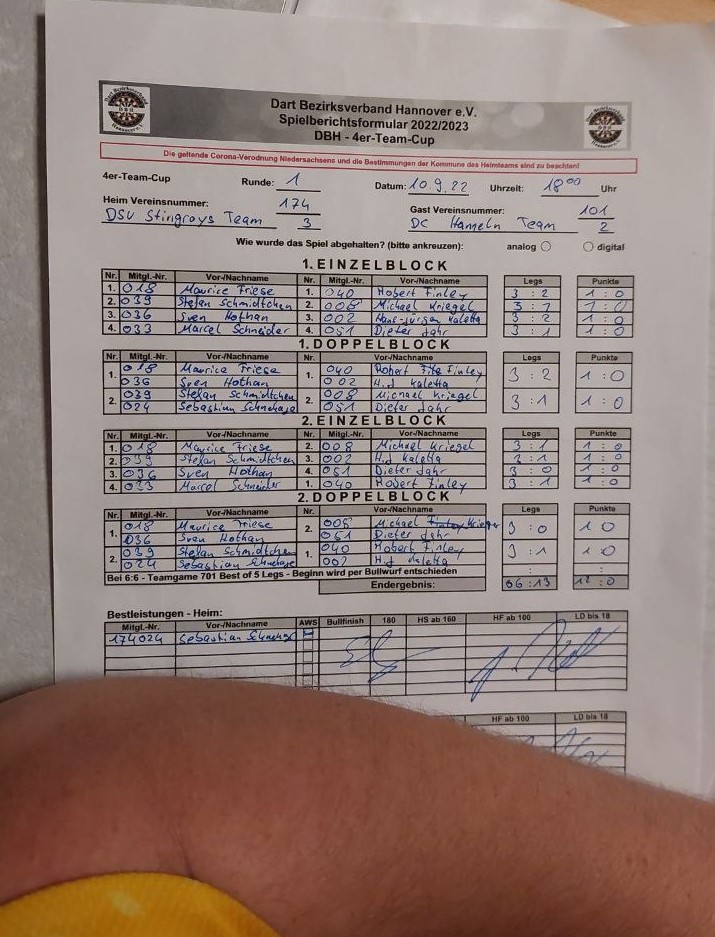 Dart Bezirksverband Hannover e.V.
Spielberichtsformular 2022/2023
DBH - 4er-Team-Cup
Die geltende Corona-Verodnung Niedersachsens und die Bestimmungen der Kommune des Heimteams sind zu beachten!
4er-Team-Cup Runde: 1 Datum: 10.9.22 Uhrzeit: 18 00 Uhr
Heim Vereinsnummer: 174 Gast Vereinsnummer: 101
DSV Stingrays Team 3 DC Hameln Team 2
Wie wurde das Spiel abgehalten? (bitte ankreuzen): analog digital
1. EINZELBLOCK
Nr. Mitgl.-Nr. Vor-/Nachname Nr. Mitgl.-Nr. Vor-/Nachname Legs Punkte
1. 018 Maurice Friese 1. 040 Robert Finley 3 : 2 1 : 0
2. 039 Stefan Schmidtchen 2. 008 Michael Kriegel 3 : 1 : 0
3. 036 Sven Hothan 3. 002 Hans-Jürgen Kaletta 3 : 2 1 : 0
4. 033 Marcel Schneider 4. 051 Dieter Jahr 3 : 1 1 : 0
1. DOPPELBLOCK
Nr. Mitgl.-Nr. Vor-/Nachname Nr. Mitgl.-Nr. Vor-/Nachname Legs Punkte
1. 018 Maurice Friese 1. 040 Robert Finley 3 : 2 1 : 0
036 Sven Hothan 002 H.J Kaletta
2. 039 Stefan Schmidtchen 2. 008 Michael Kriegel 3 : 1 1 : 0
024 Sebastian 051 Dieter Jahr
2. EINZELBLOCK
Nr. Mitgl.-Nr. Vor-/Nachname Nr. Mitgl.-Nr. Vor-/Nachname Legs Punkte
1. 018 Maurice Friese 2. 008 Michael Kriegel 3 : 1 1 : 0
2. 039 Stefan Schmidtchen 3. 002 H.J Kaletta 3 : 1 1 : 0
3. 036 Sven Hothan 4. 051 Dieter Jahr 3 : 0 1 : 0
4. 033 Marcel Schneider 1. 040 Robert Finley 3 : 1 1 : 0
2. DOPPELBLOCK
Nr. Mitgl.-Nr. Vor-/Nachname Nr. Mitgl.-Nr. Vor-/Nachname Legs Punkte
1. 018 Maurice Friese 2. 008 Michael Kriegel 3 : 0 1 : 0
036 Sven Hothan 051 Dieter Jahr
2. 039 Stefan Schmidtchen 1. 040 Robert Finley 3 : 1 1 : 0
024 Sebastian 002 H.J Kaletta
Bei 6:6 - Teamgame 701 Best of 5 Legs - Beginn wird per Bullwurf entschieden
Endergebnis: 36 : 13 12 : 0
Bestleistungen - Heim:
Mitgl.-Nr. Vor-/Nachname AWS Bullfinish 180 HS ab 160 HF ab 100 LD bis 18
174024 Sebastian
HF ab 100 LD bis 18